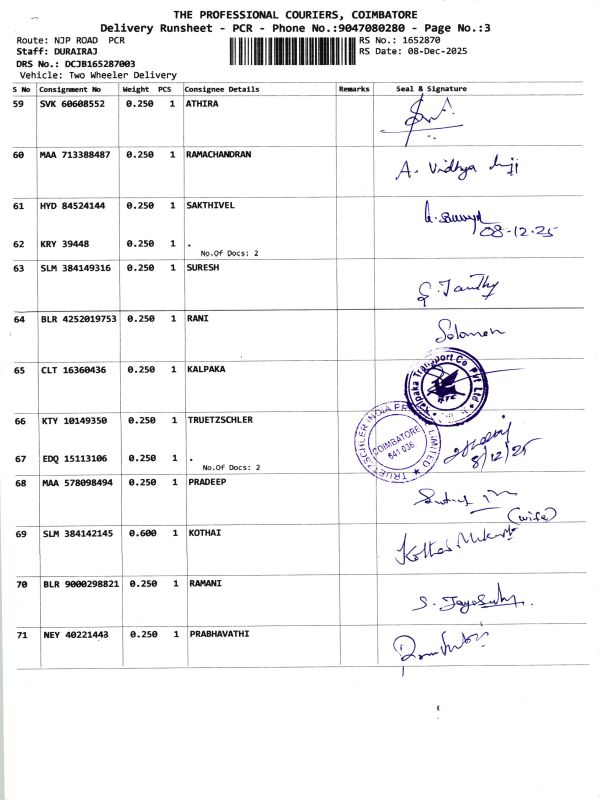 THE PROFESSIONAL COURIERS, COIMBATORE
Delivery Runsheet - PCR - Phone No.:9047080280 - Page No.:3
Route: NJP ROAD PCR
RS No.: 1652870
Staff: DURAIRAJ
RS Date: 08-Dec-2025
DRS No.: DCJB165287003
Vehicle: Two Wheeler Delivery
S No Consignment No Weight PCS Consignee Details Remarks Seal & Signature
59 SVK 60608552 0.250 1 ATHIRA
60 MAA 713388487 0.250 1 RAMACHANDRAN
A. Vidhya
61 HYD 84524144 0.250 1 SAKTHIVEL
08-12.25
62 KRY 39448 0.250 1 .
No.Of Docs: 2
63 SLM 384149316 0.250 1 SURESH
64 BLR 4252019753 0.250 1 RANI
Solomon
65 CLT 16360436 0.250 1 KALPAKA
Kalpaka Transport Co Pvt Ltd
66 KTY 10149350 0.250 1 TRUETZSCHLER
TRUETZSCHLER INDIA PRIVATE LIMITED
COIMBATORE
641 036
8/12/25
67 EDQ 15113106 0.250 1 .
No.Of Docs: 2
68 MAA 578098494 0.250 1 PRADEEP
(wife)
69 SLM 384142145 0.600 1 KOTHAI
70 BLR 9000298821 0.250 1 RAMANI
71 NEY 40221443 0.250 1 PRABHAVATHI